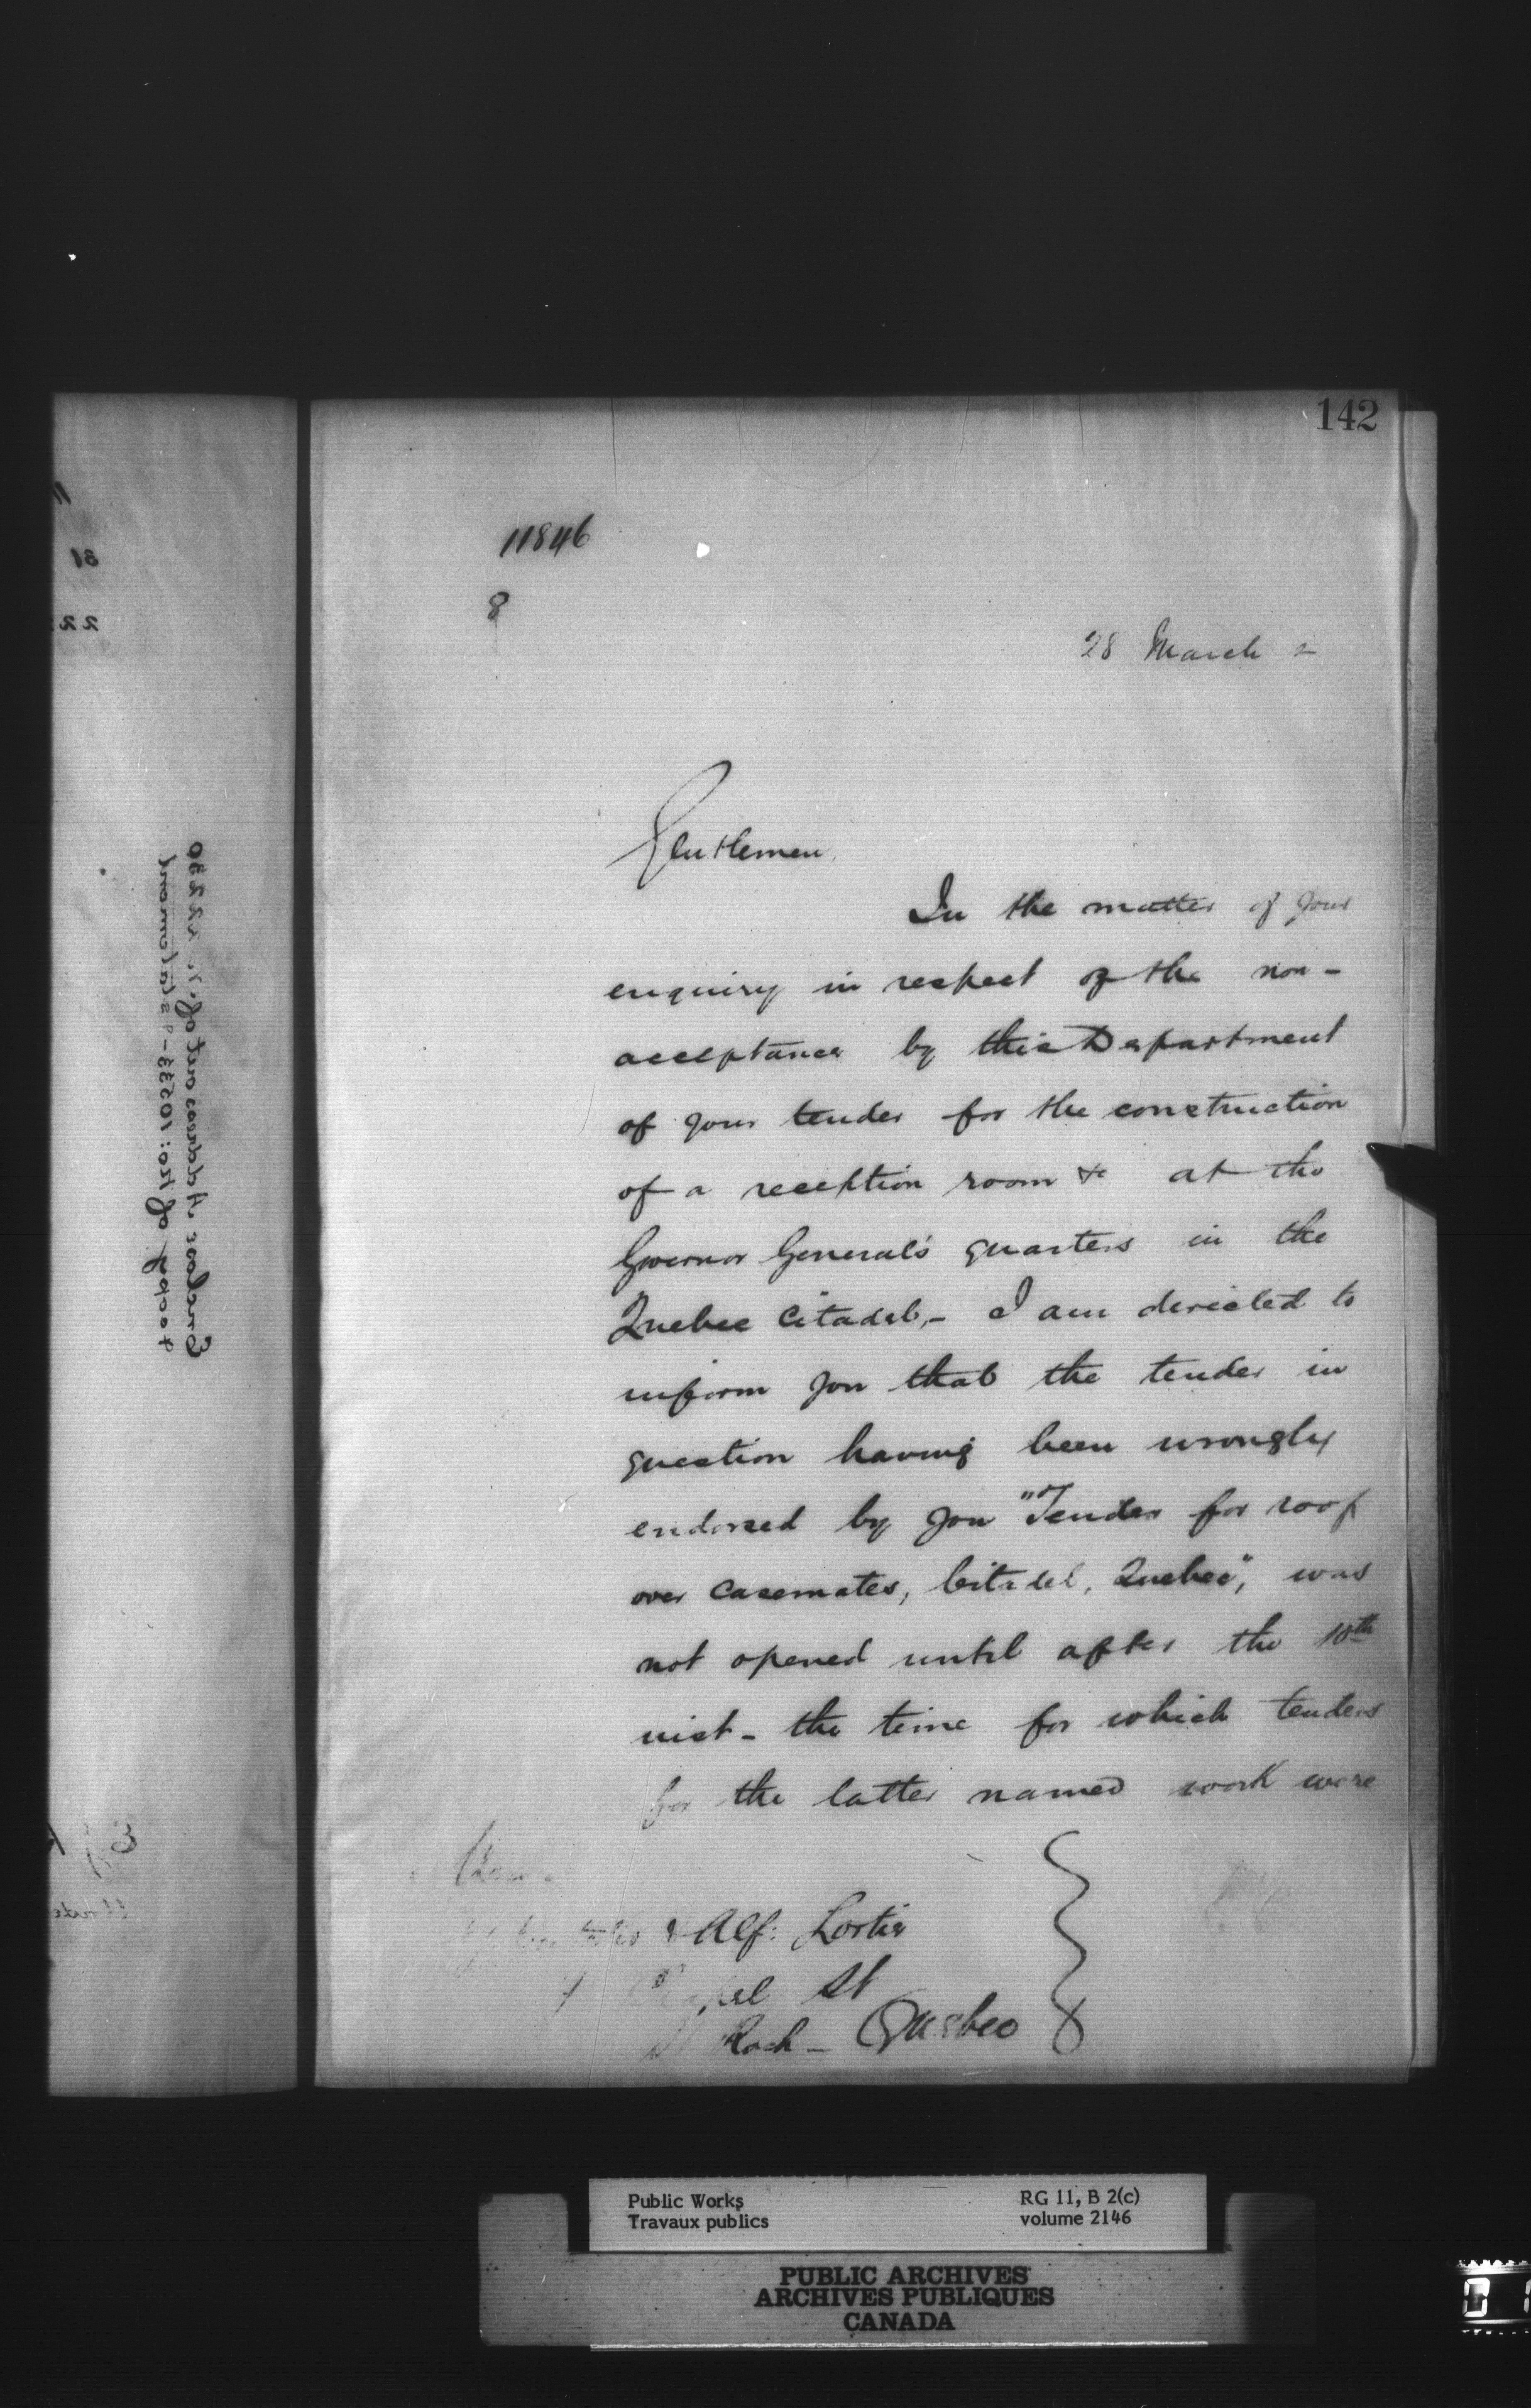 142
11846
8
28 March 2
Gentlemen,
In the matter of your
enquiry in respect of the non-
acceptance by this Department
of your tender for the construction
of a reception room &c at the
Governor General's quarters in the
Quebec Citadel,- I am directed to
inform you that the tender in
question having been wrongly
endorsed by you "Tender for roof
over casemates, Citadel, Quebec", was
not opened until after the 10th
inst - the time for which tenders
for the latter named work were
& Alf: Lortie
St
Roch - Quebec
Public Works
Travaux publics
RG 11, B 2(c)
volume 2146
PUBLIC ARCHIVES
ARCHIVES PUBLIQUES
CANADA